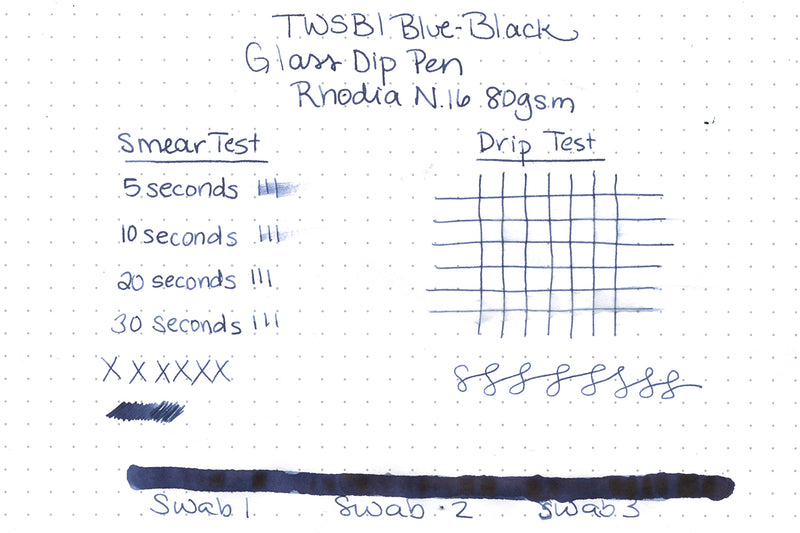 TWSBI Blue-Black
Glass Dip Pen
Rhodia N.16 80gsm
Smear Test
5 seconds
10 seconds
20 seconds
30 seconds
X X X X X X
Drip Test
Swab 1
Swab 2
Swab 3